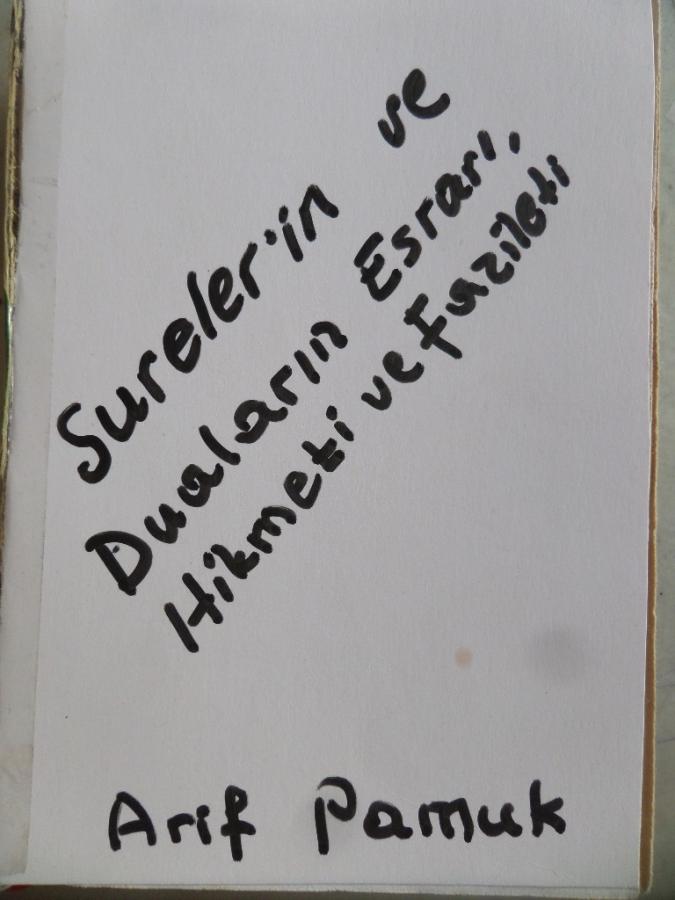 Sureler'in ve
Duaların Esrarı,
Hikmeti ve Fazileti
Arif Pamuk